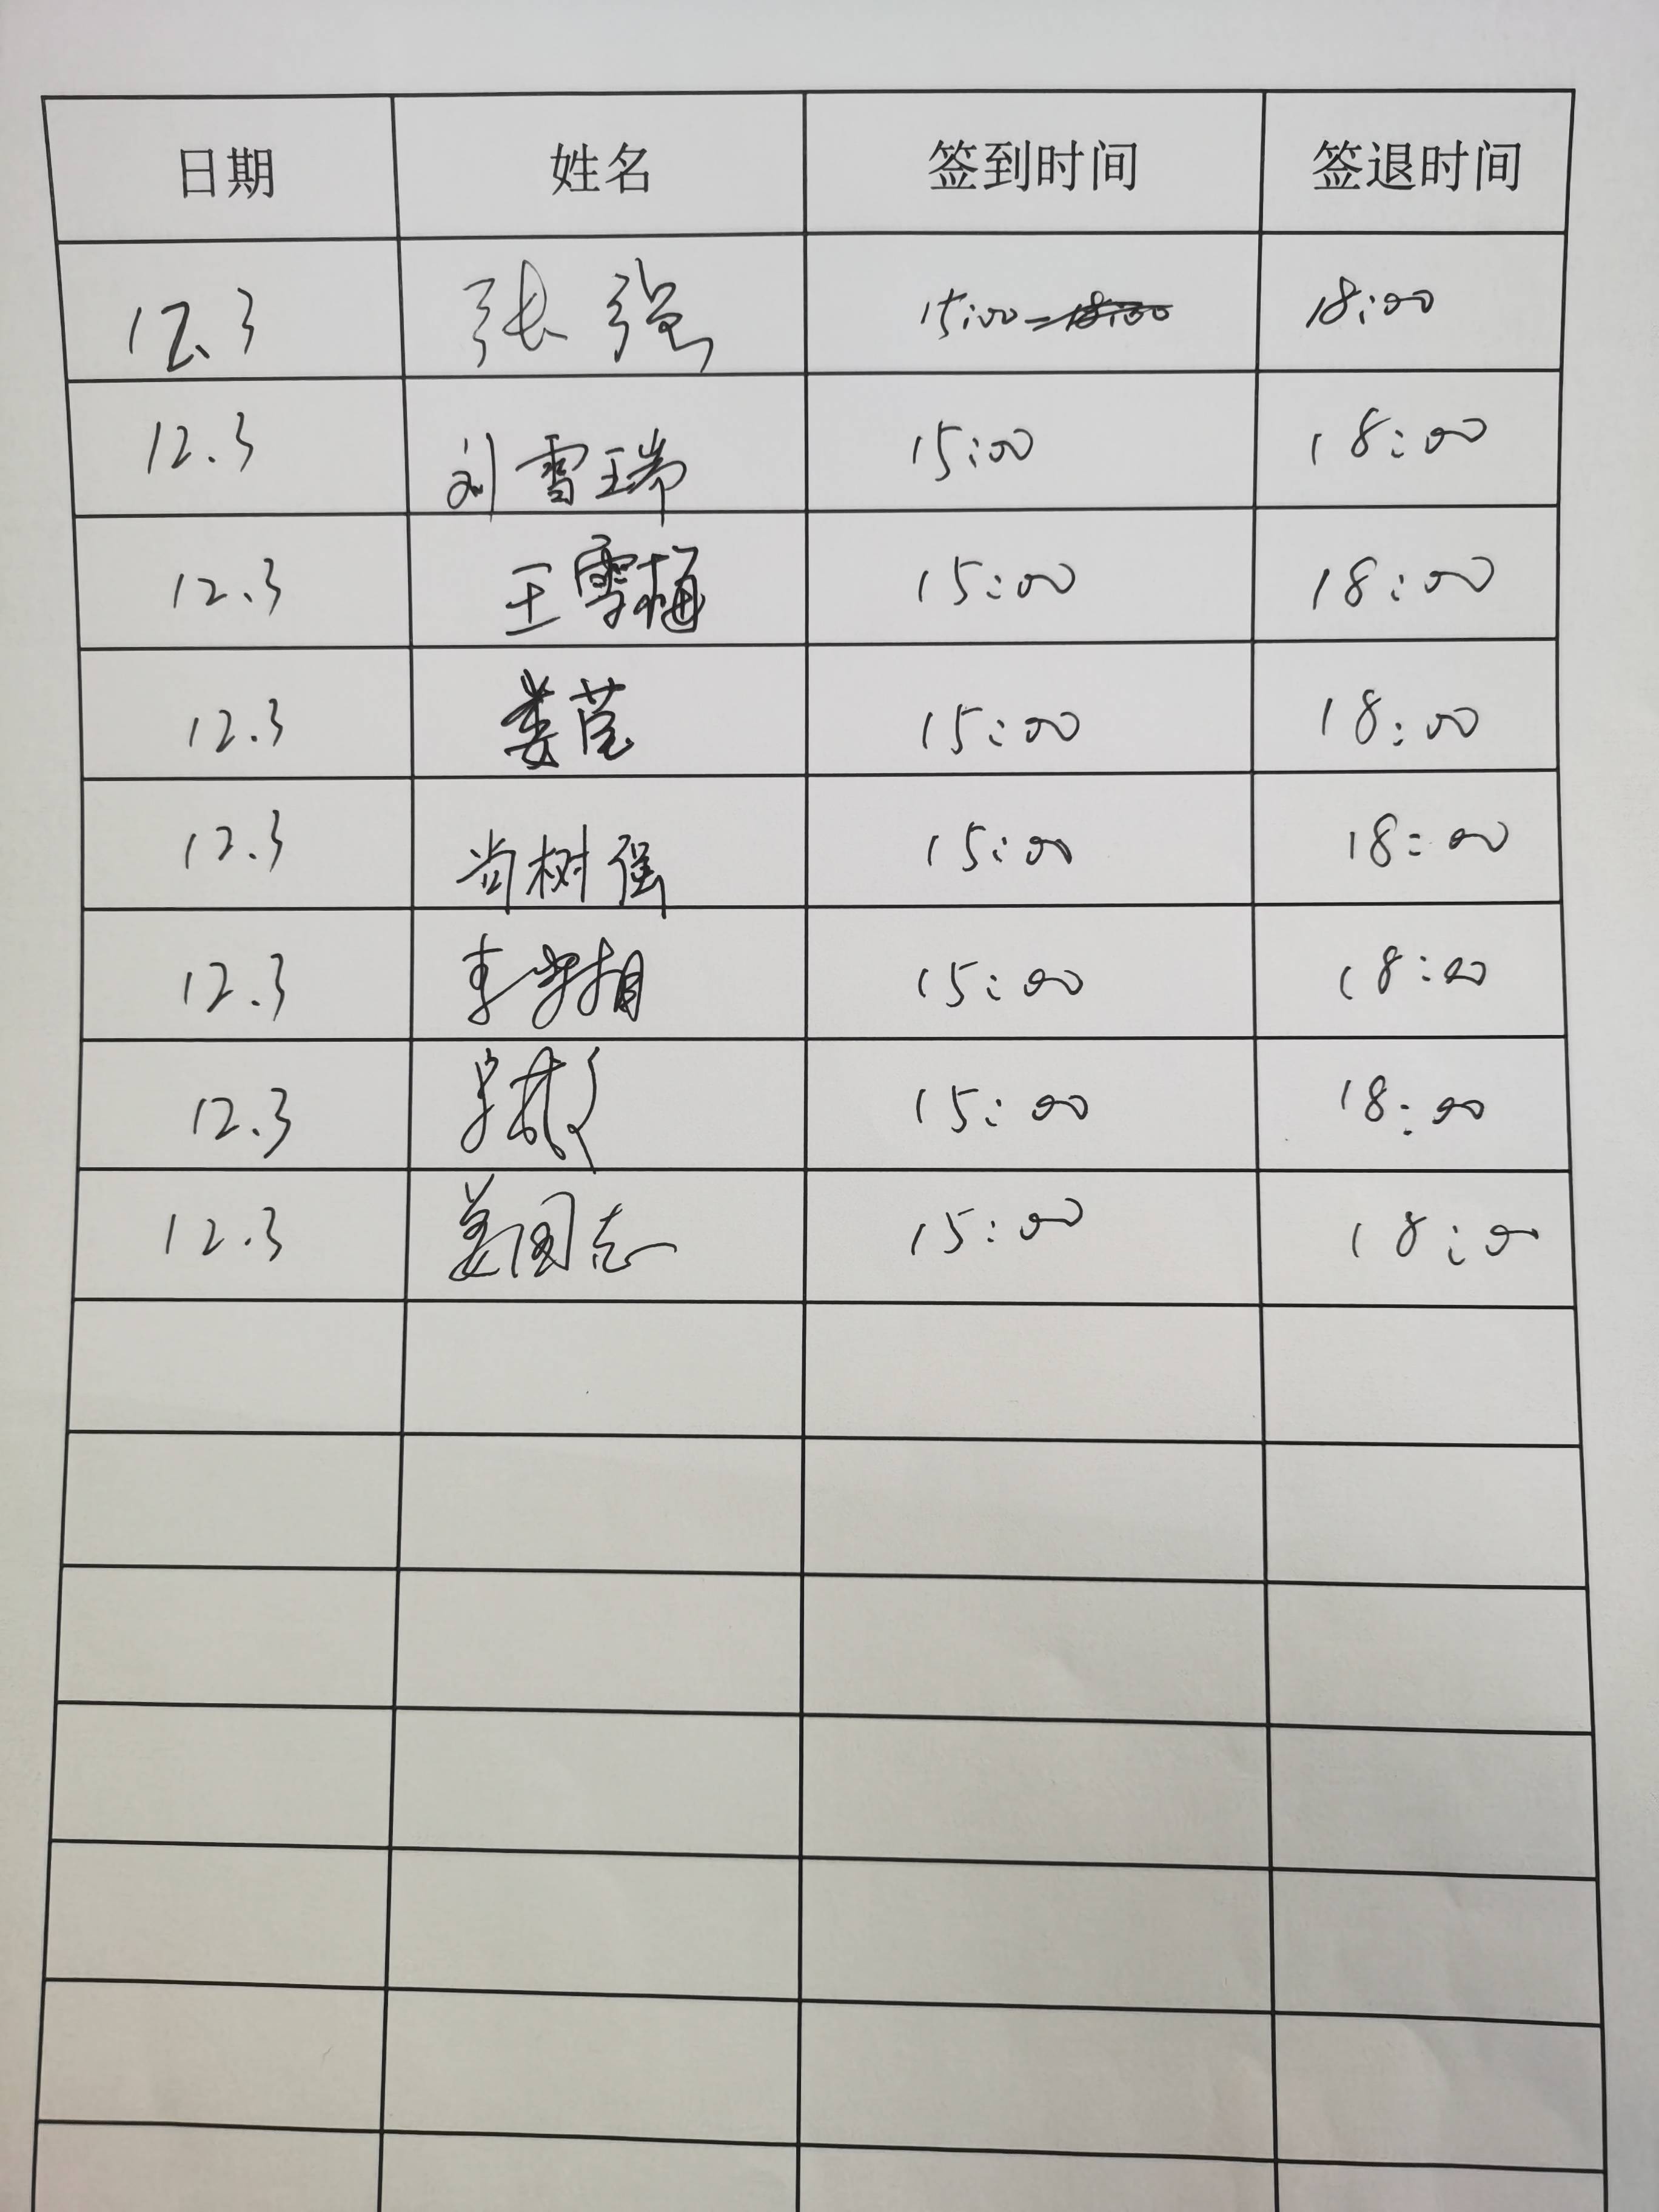 日期 姓名 签到时间 签退时间
12.3 张强 15:00 18:00
12.3 刘雪瑞 15:00 18:00
12.3 王雪梅 15:00 18:00
12.3 15:00 18:00
12.3 尚树强 15:00 18:00
12.3 15:00 18:00
12.3 15:00 18:00
12.3 姜国志 15:00 18:00